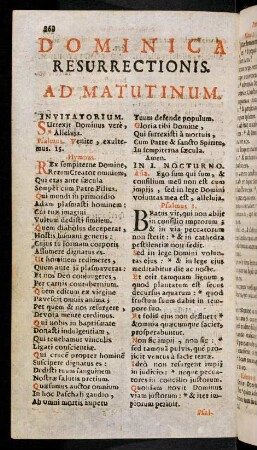 260
DOMINICA
RESURRECTIONIS.
AD MATUTINUM.
INVITATORIUM.
Surrexit Dominus verè,
Alleluja.
Psalmus. Venite, exulte-
mus. 15.
Hymnus.
REx sempiterne Domine,
Rerum Creator omnium,
Qui eras ante sæcula
Semper cum Patre Filius.
Qui mundi in primordio
Adam plasmasti hominem:
Cui tuæ imagini
Vultum dedisti similem.
Quem diabolus deceperat,
Hostis humani generis:
Cujus tu formam corporis
Assumere dignatus es.
Ut hominem redimeres,
Quem ante jà plasmaveras:
Et nos Deo conjungeres
Per carnis contubernium.
Quem editum ex virgine
Pavescit omnis anima;
Per quem & nos resurgere,
Devota mente credimus.
Qui nobis in baptismate
Donasti indulgentiam,
Qui tenebamur vinculis
Ligati conscientiæ.
Qui crucé propter hominé
Suscipere dignatus es:
Dedisti tuum sanguinem
Nostræ salutis pretium.
Quæsumus auctor omnium
In hoc Paschali gaudio,
Ab omni mortis impetu
Tuum defende populum.
Gloria tibi Domine,
Qui surrexisti à mortuis,
Cum Patre & sancto Spiritu,
In sempiterna sæcula.
Amen.
IN I. NOCTURNO.
Aña. Ego sum qui sum, &
consilium meum non est cum
impiis, sed in lege Domini
voluntas mea est, alleluia.
Psalmus 1.
BEatus vir, qui non abiit
in consilio impiorum:
& in via peccatorum
non stetit: * & in cathedra
pestilentiæ non sedit.
Sed in lege Domini volun-
tas ejus: * & in lege ejus
meditabitur die ac nocte.
Et erit tamquam lignum,
quod plantatum est secus
decursus aquarum: * quod
fructum suum dabit in tem-
pore suo.
Et folium ejus non defluet: *
& omnia quæcumque faciet,
prosperabuntur.
Non sic impii, non sic: *
sed tamquã pulvis, quē pro-
jicit ventus à facie terræ.
Ideò non resurgent impii
in judicio: * neque pec-
catores in concilio justorum.
Quoniam novit Dominus
viam justorum: * & iter im-
piorum peribit.
Psal-